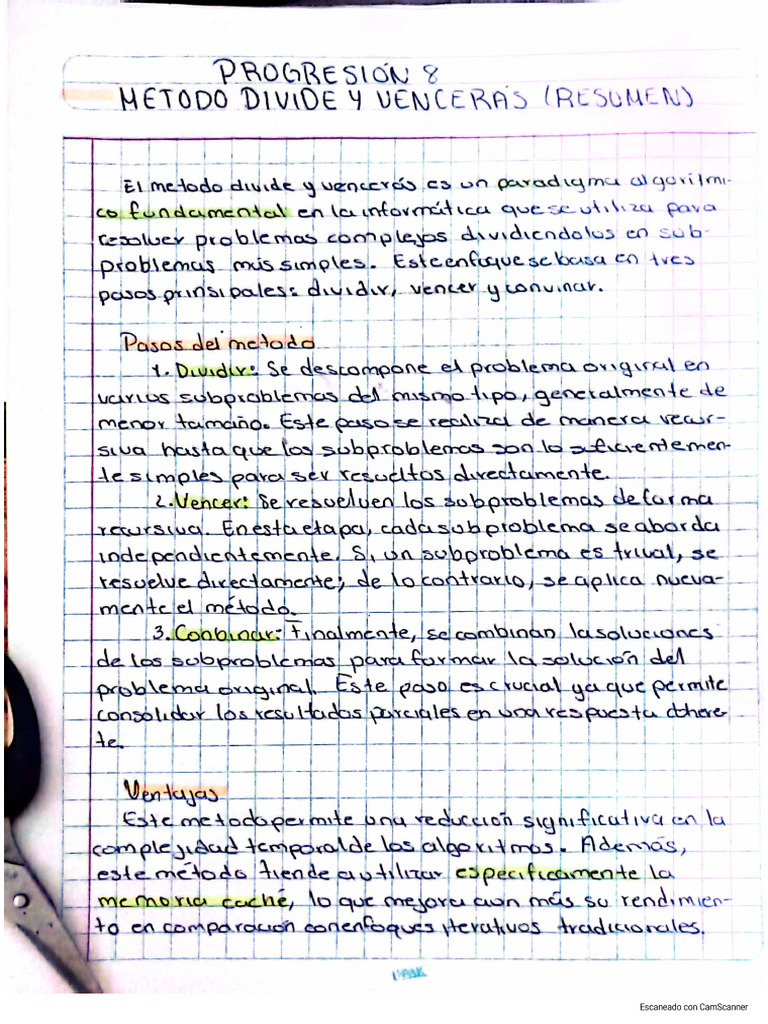 PROGRESIÓN 8
METODO DIVIDE Y VENCERÁS (RESUMEN)
El metodo divide y vencerás es un paradigma algoritmi-
co fundamental en la informática que se utiliza para
resolver problemas complejos dividiendolos en sub-
problemas más simples. Este enfoque se basa en tres
pasos prinsipales: dividir, vencer y convinar.
Pasos del metodo
1. Dividir: Se descompone el problema original en
varios subproblemas del mismo tipo, generalmente de
menor tamaño. Este paso se realiza de manera recur-
siva hasta que los subproblemas son lo suficientemen-
te simples para ser resueltos directamente.
2. Vencer: Se resuelven los subproblemas de forma
recursiva. En esta etapa, cada subproblema se aborda
independientemente. Si un subproblema es trival, se
resuelve directamente; de lo contrario, se aplica nueva-
mente el método.
3. Conbinar: Finalmente, se combinan la soluciones
de los subproblemas para formar la solución del
problema original. Este paso es crucial ya que permite
consolidar los resultados parciales en una respuesta cohere-
te.
Ventajas
Este metodo permite una reducción significativa en la
complejidad temporal de los algoritmos. Además,
este método tiende a utilizar especificamente la
memoria caché, lo que mejora aun más su rendimien-
to en comparación con enfoques iterativos tradicionales.
Escaneado con CamScanner